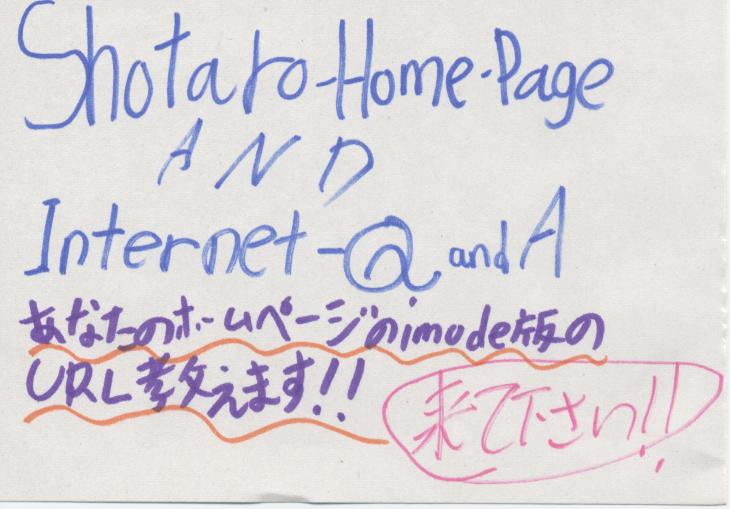 Shotaro-Home-Page
AND
Internet-Q and A
あなたのホームページのimode版の
URL教えます!!
来て下さい!!